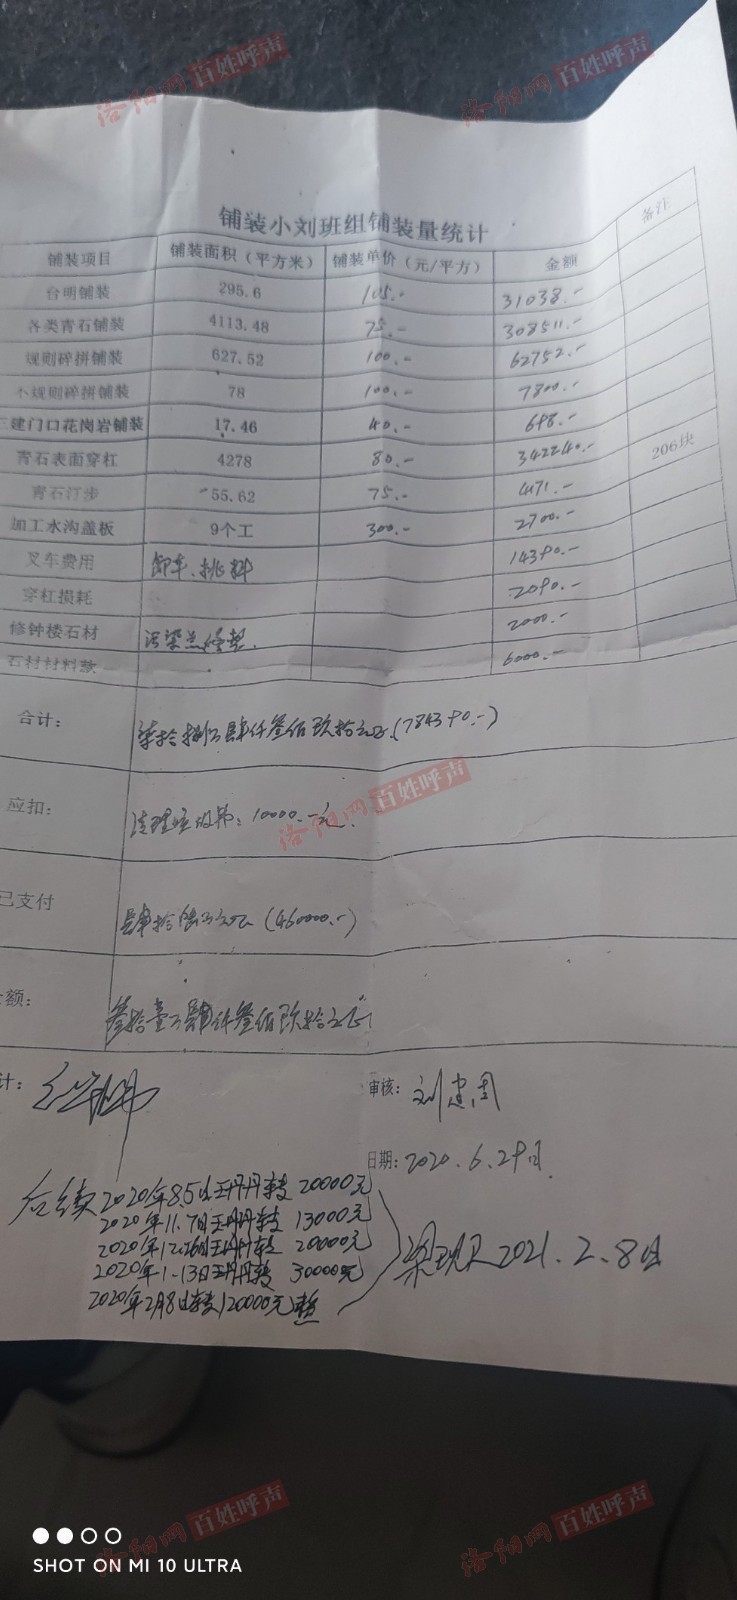 洛阳网 百姓呼声
洛阳网 百姓呼声
铺装小刘班组铺装量统计
铺装项目 铺装面积（平方米） 铺装单价（元/平方） 金额 备注
台明铺装 295.6 105.- 31038.-
各类青石铺装 4113.48 75.- 308511.-
规则碎拼铺装 627.52 100.- 62752.-
不规则碎拼铺装 78 100.- 7800.-
三建门口花岗岩铺装 17.46 40.- 698.-
青石表面穿杠 4278 80.- 342240.-
青石汀步 55.62 75.- 4171.- 206块
加工水沟盖板 9个工 300.- 2700.-
叉车费用 卸车、挑料 14390.-
穿杠损耗 2090.-
修钟楼石材 污染 2000.-
石材材料款 6000.-
合计： 柒拾捌万肆仟叁佰玖拾元正（784390.-）
应扣： 清理垃圾费：10000.-元
洛阳网 百姓呼声
已支付 肆拾陆万元正（460000.-）
金额： 叁拾壹万肆仟叁佰玖拾元正
计：
审核： 刘建国
日期：2020.6.29日
后续2020年8.5日王丹丹转支 20000元
2020年11.7日王丹丹转支 13000元
2020年12.26日王丹丹转支 20000元
2020年1.13日王丹丹转 30000元
2020年2月8日转支120000元整
2021.2.8日
洛阳网 百姓呼声
洛阳网 百姓呼声
SHOT ON MI 10 ULTRA